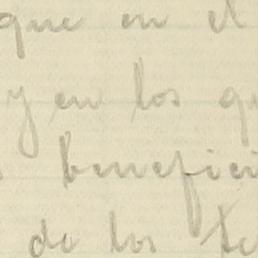 que en el
y en los qu
benefici
de los te